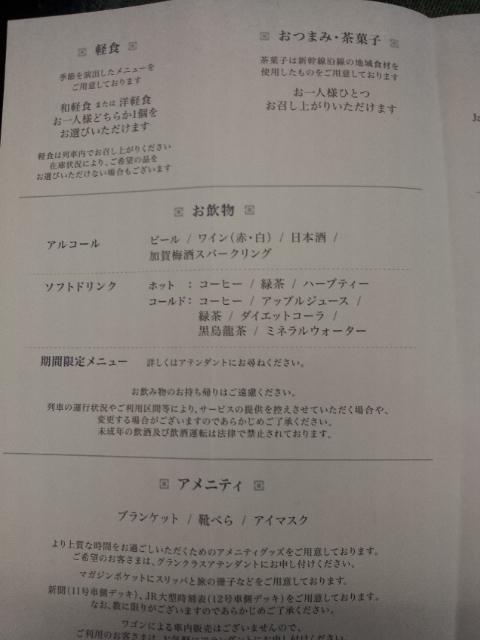 軽食
季節を演出したメニューを
ご用意しております
和軽食 または 洋軽食
お一人様どちらか1個を
お選びいただけます
軽食は列車内でお召し上がりください
在庫状況により、ご希望の品を
お選びいただけない場合もございます
おつまみ・茶菓子
茶菓子は新幹線沿線の地域食材を
使用したものをご用意しております
お一人様ひとつ
お召し上がりいただけます
お飲物
アルコール
ビール / ワイン(赤・白) / 日本酒 /
加賀梅酒スパークリング
ソフトドリンク
ホット : コーヒー / 緑茶 / ハーブティー
コールド : コーヒー / アップルジュース /
緑茶 / ダイエットコーラ /
黒烏龍茶 / ミネラルウォーター
期間限定メニュー 詳しくはアテンダントにお尋ねください。
お飲み物のお持ち帰りはご遠慮ください。
列車の運行状況やご利用区間等により、サービスの提供を控えさせていただく場合や、
変更する場合がございますのであらかじめご了承ください。
未成年の飲酒及び飲酒運転は法律で禁止されております。
アメニティ
ブランケット / 靴べら / アイマスク
より上質な時間をお過ごしいただくためのアメニティグッズをご用意しております。
ご希望のお客さまは、グランクラスアテンダントにお申し付けください。
マガジンポケットにスリッパと旅の冊子などをご用意しております。
新聞(11号車側デッキ)、JR大型時刻表(12号車側デッキ)をご用意しております。
なお、数に限りがございますのであらかじめご了承ください。
ワゴンによる車内販売はございませんので、
ご利用のお客さまは、